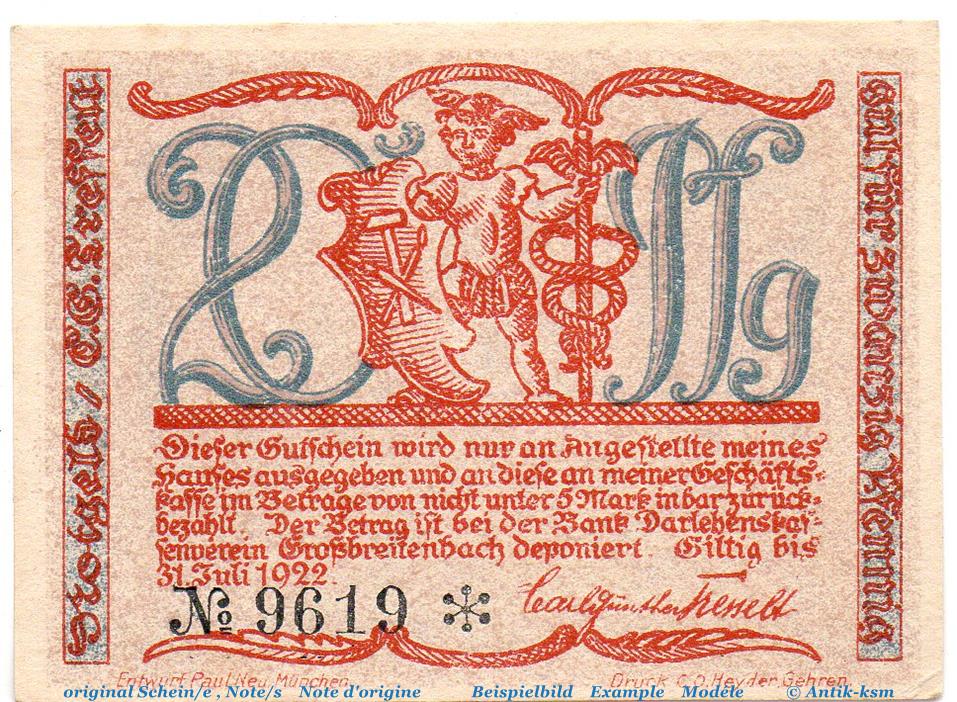 C.G.Treßelt
20 Pfg
Gut für Zwanzig Pfennig
Dieser Gutschein wird nur an Angestellte meines
Hauses ausgegeben und an diese an meiner Geschäfts-
kasse im Betrage von nicht unter 5 Mark in bar zurück-
bezahlt. Der Betrag ist bei der Bank Darlehenskas-
senverein Großbreitenbach deponiert. Giltig bis
31. Juli 1922.
№ 9619 Carl Günther Tresselt
Entwurf Paul Neu, München. Druck C.O. Heyder Gehren.
original Schein/e , Note/s Note d'origine Beispielbild Example Modéle © Antik-ksm